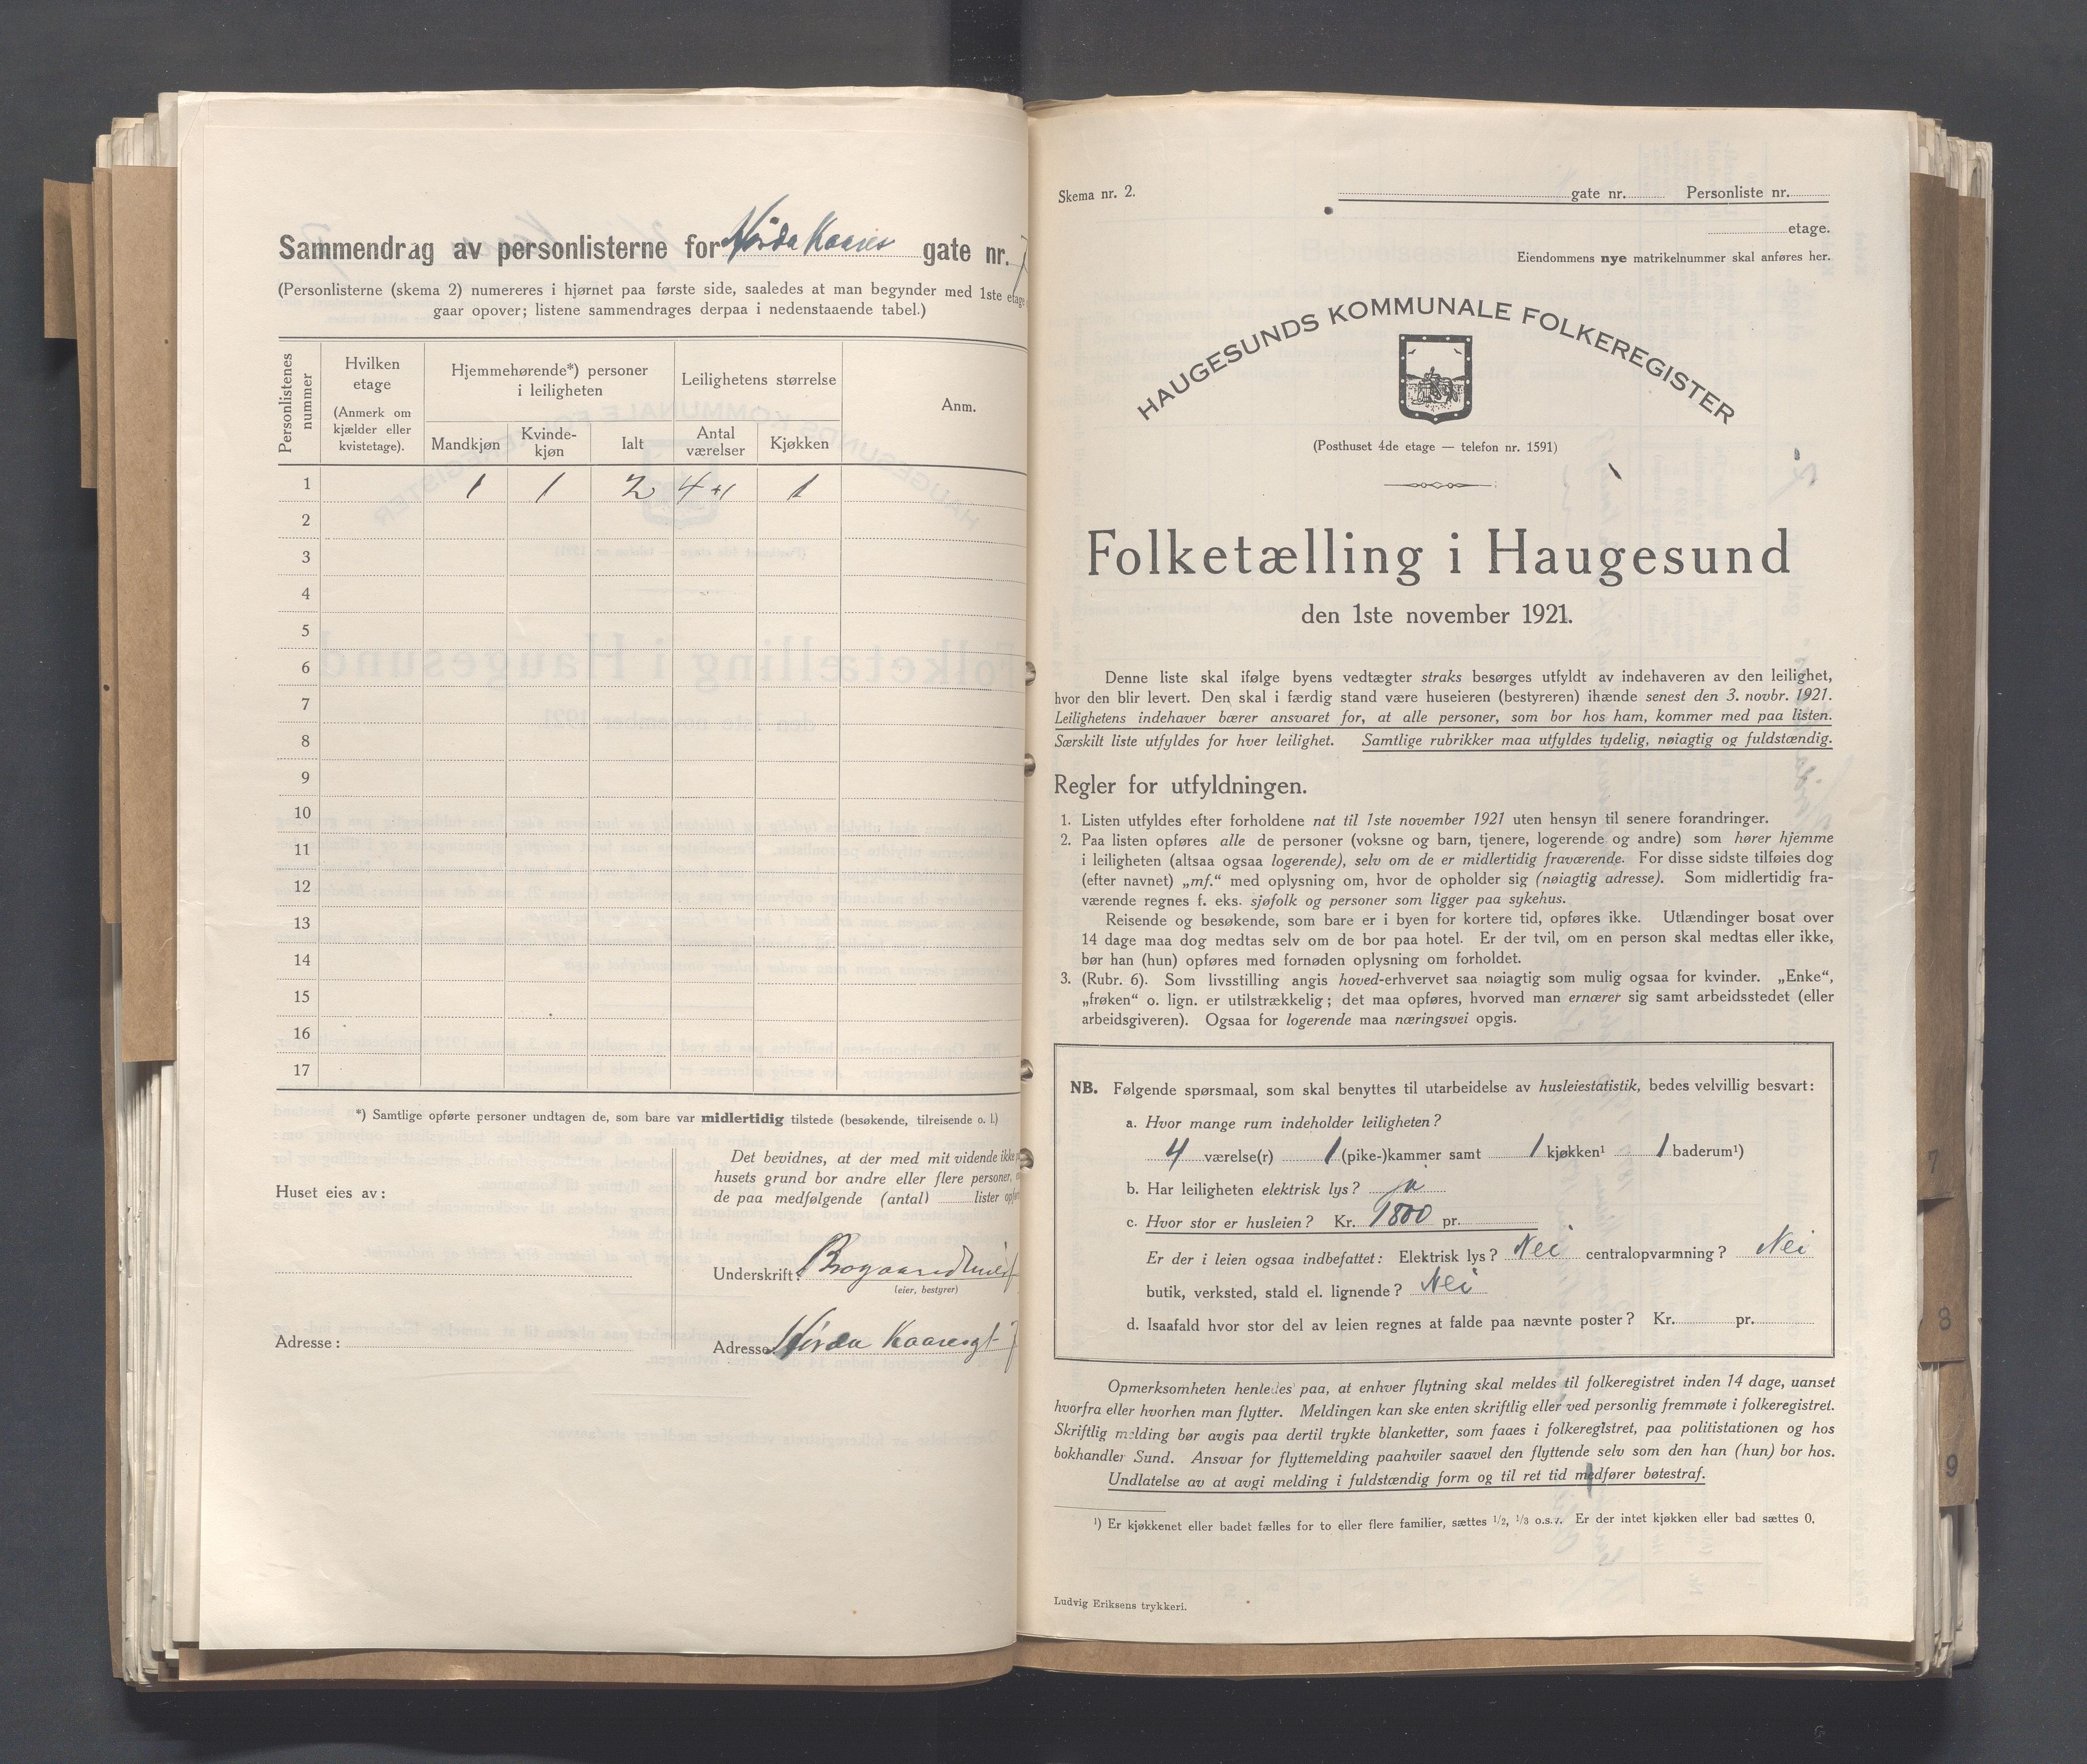 Sammendrag av personlisterne for Hørda Kaares gate nr. 7
(Personlisterne (skema 2) numereres i hjørnet paa første side, saaledes at man begynder med 1ste etage
gaar opover; listene sammendrages derpaa i nedenstaaende tabel.)
Personlistenes nummer
Hvilken etage
(Anmerk om kjælder eller kvistetage).
Hjemmehørende*) personer i leiligheten
Leilighetens størrelse
Anm.
Mandkjøn Kvinde-kjøn Ialt Antal værelser Kjøkken
1 1 1 2 4+1 1
2
3
4
5
6
7
8
9
10
11
12
13
14
15
16
17
*) Samtlige opførte personer undtagen de, som bare var midlertidig tilstede (besøkende, tilreisende o. l.)
Huset eies av:
Adresse:
Det bevidnes, at der med mit vidende ikke
husets grund bor andre eller flere personer,
de paa medfølgende (antal) lister
Underskrift:
(eier, bestyrer)
Adresse: Hørda Kaaresgt 7
Skema nr. 2.
gate nr. Personliste nr.
etage.
Eiendommens nye matrikelnummer skal anføres her.
HAUGESUNDS KOMMUNALE FOLKEREGISTER
(Posthuset 4de etage — telefon nr. 1591)
Folketælling i Haugesund
den 1ste november 1921.
Denne liste skal ifølge byens vedtægter straks besørges utfyldt av indehaveren av den leilighet,
hvor den blir levert. Den skal i færdig stand være huseieren (bestyreren) ihænde senest den 3. novbr. 1921.
Leilighetens indehaver bærer ansvaret for, at alle personer, som bor hos ham, kommer med paa listen.
Særskilt liste utfyldes for hver leilighet. Samtlige rubrikker maa utfyldes tydelig, nøiagtig og fuldstændig.
Regler for utfyldningen.
1. Listen utfyldes efter forholdene nat til 1ste november 1921 uten hensyn til senere forandringer.
2. Paa listen opføres alle de personer (voksne og barn, tjenere, logerende og andre) som hører hjemme
i leiligheten (altsaa ogsaa logerende), selv om de er midlertidig fraværende. For disse sidste tilføies dog
(efter navnet) „mf.“ med oplysning om, hvor de opholder sig (nøiagtig adresse). Som midlertidig fra-
værende regnes f. eks. sjøfolk og personer som ligger paa sykehus.
Reisende og besøkende, som bare er i byen for kortere tid, opføres ikke. Utlændinger bosat over
14 dage maa dog medtas selv om de bor paa hotel. Er der tvil, om en person skal medtas eller ikke,
bør han (hun) opføres med fornøden oplysning om forholdet.
3. (Rubr. 6). Som livsstilling angis hoved-erhvervet saa nøiagtig som mulig ogsaa for kvinder. „Enke“,
„frøken“ o. lign. er utilstrækkelig; det maa opføres, hvorved man ernærer sig samt arbeidsstedet (eller
arbeidsgiveren). Ogsaa for logerende maa næringsvei opgis.
NB. Følgende spørsmaal, som skal benyttes til utarbeidelse av husleiestatistik, bedes velvillig besvart:
a. Hvor mange rum indeholder leiligheten?
4 værelse(r) 1 (pike-)kammer samt 1 kjøkken¹ 1 baderum¹)
b. Har leiligheten elektrisk lys? ja
c. Hvor stor er husleien? Kr. 1800 pr.
Er der i leien ogsaa indbefattet: Elektrisk lys? Nei centralopvarmning? Nei
butik, verksted, stald el. lignende? Nei
d. Isaafald hvor stor del av leien regnes at falde paa nævnte poster? Kr. pr.
Opmerksomheten henledes paa, at enhver flytning skal meldes til folkeregistret inden 14 dage, uanset
hvorfra eller hvorhen man flytter. Meldingen kan ske enten skriftlig eller ved personlig fremmøte i folkeregistret.
Skriftlig melding bør avgis paa dertil trykte blanketter, som faaes i folkeregistret, paa politistationen og hos
bokhandler Sund. Ansvar for flyttemelding paahviler saavel den flyttende selv som den han (hun) bor hos.
Undlatelse av at avgi melding i fuldstændig form og til ret tid medfører bøtestraf.
¹) Er kjøkkenet eller badet fælles for to eller flere familier, sættes 1/2, 1/3 o.s.v. Er der intet kjøkken eller bad sættes 0.
Ludvig Eriksens trykkeri.
7
8
9